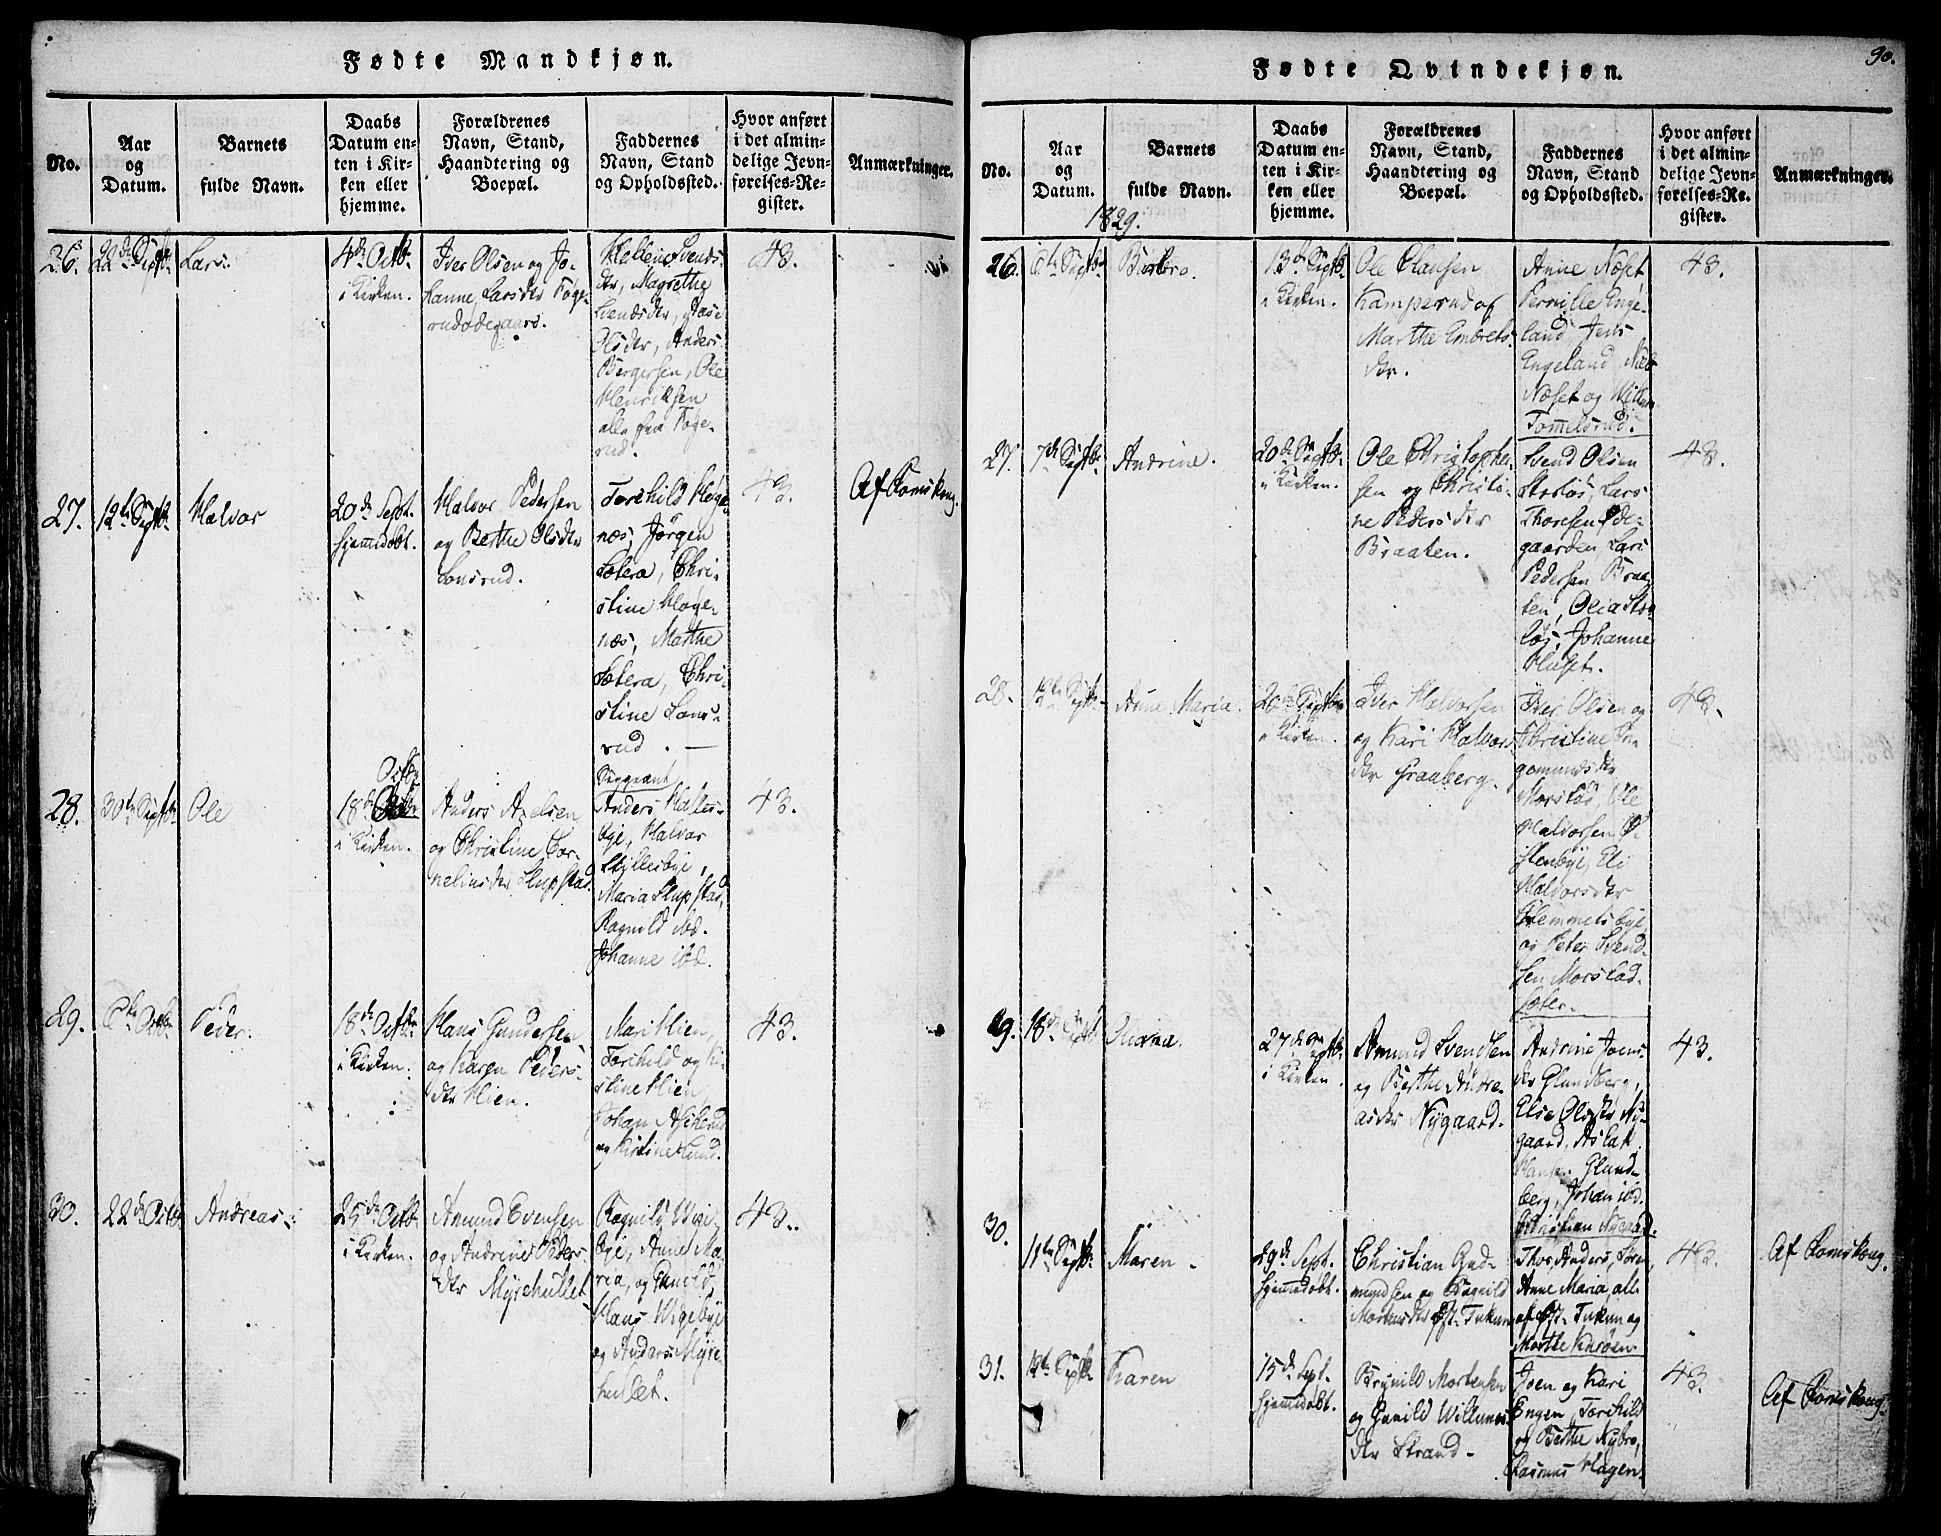 Fødte Mandkjøn.
No.
Aar
og
Datum.
Barnets
fulde Navn.
Daabs
Datum en-
ten i Kir-
ken eller
hjemme.
Forældrenes
Navn, Stand,
Haandtering og
Boepæl.
Faddernes
Navn, Stand
og Opholdssted.
Hvor anført
i det almin-
delige Jevn-
førelses-Re-
gister.
Anmærkninger.
26.
22de Septbr
Lars.
4de Octbr
i Kirken.
Iver Olsen og Jo-
hanne Larsdtr Foge-
rudødegaard.
Svends-
dtr, Magrethe
Svendsdtr,
Olsdtr, Anders
Bergersen, Ole
Henriksen
alle fra Foge-
rud.
43.
27.
12te Septbr
Halvor
20de Sept.
hjemdøbt.
Halvor Pedersen
og Berthe Olsdtr
Sonsrud.
Torchild Hage-
næs, Jørgen
Sætera, Chri-
stine Hage-
næs, Marthe
Sætera, Chri-
stine Sons-
rud. —
43.
Af Romskoug.
28.
30te Septbr
Ole
Octbr
18de
i Kirken.
Anders Axelsen
og Christine Cor-
neliusdtr Slupstad
Sergeant
Anders Halles-
bye, Halvor
Skyllesbye,
Maria Slupstad,
Ragnild ibd.
Johanne ibd.
43.
29.
6te Octbr
Peder.
18de Octbr
i Kirken.
Hans Gundersen
og Karen Peders-
dtr Mien.
Mari Mien,
Torchild og Ki-
stine Mien,
Johan Askerud
og Kistine Lund.
43.
30.
22de Octbr
Andreas.
25de Octbr
i Kirken.
Amund Evensen
og Andrine Peders-
dtr Myrehullet
Ragnild Wige-
bye, Anne Ma-
ria, og Gunild,
Hans Wigebye
og Anders Myre-
hullet.
43.
Fødte Qvindekjøn.
90.
No.
Aar
og
Datum.
1829.
Barnets
fulde Navn.
Daabs
Datum en-
ten i Kir-
ken eller
hjemme.
Forældrenes
Navn, Stand,
Haandtering og
Boepæl.
Faddernes
Navn, Stand
og Opholdssted.
Hvor anført
i det almin-
delige Jevn-
førelses-Re-
gister.
Anmærkninger.
26.
6te Septbr
Barbro.
13de Septbr
i Kirken.
Ole Clausen
Kamperud og
Marthe Embrets-
dtr.
Anne Næset
Pernille Enge-
land, Jens
Engeland,
Næset og
Tommelsrud.
43.
27.
7de Septbr
Andrine.
20de Septbr
i Kirken.
Ole Christopher-
sen og Christi-
ne Pedersdtr
Braaten.
Svend Olsen
Stoløs, Lars
Thoresen Øde-
gaarden, Lars
Pedersen Braa-
ten, Olia Sto-
løs, Johanne
Huset.
43.
28.
12te Septbr
Anne Maria.
20de Septbr
i Kirken.
Iver Halvorsen
og Kari Halvors-
dtr Graaberg.
Iver Olsen og
Christine In-
gomunsdtr
Morstad, Ole
Halvorsen Ø-
stenbye, Eli
Halvorsdtr
Klemmetsbye
og Peter Svend-
sen Morstad-
sæter.
43.
29.
18de Septbr
27de Septbr
i Kirken.
Amund Svendsen
og Berthe Andre-
asdtr Nygaard.
Andrine Joens-
dtr Glundberg,
Else Olsdtr Ny-
gaard, Aslak
Hansen Glund-
berg, Johan ibd.
Christian Nygaard.
43.
30.
11te Septbr
Maren -
29de Sept.
hjemdøbt.
Christian Gud-
mundsen og Ragnild
Mortensdtr Øst-Tukun
Thor, Anders, Søren,
Anne Maria, alle
af Øst-Tukun og
Marthe Kurøen.
43.
Af Romskoug.
31.
12te Septbr
Karen
15de Sept.
hjemdøbt.
Brynild Mortensen
og Gunild Willums-
dtr Strand -
Joen og Kari
Engen, Torchild
og Berthe Nybro,
Rasmus Hagen.
43.
Af Romskoug.